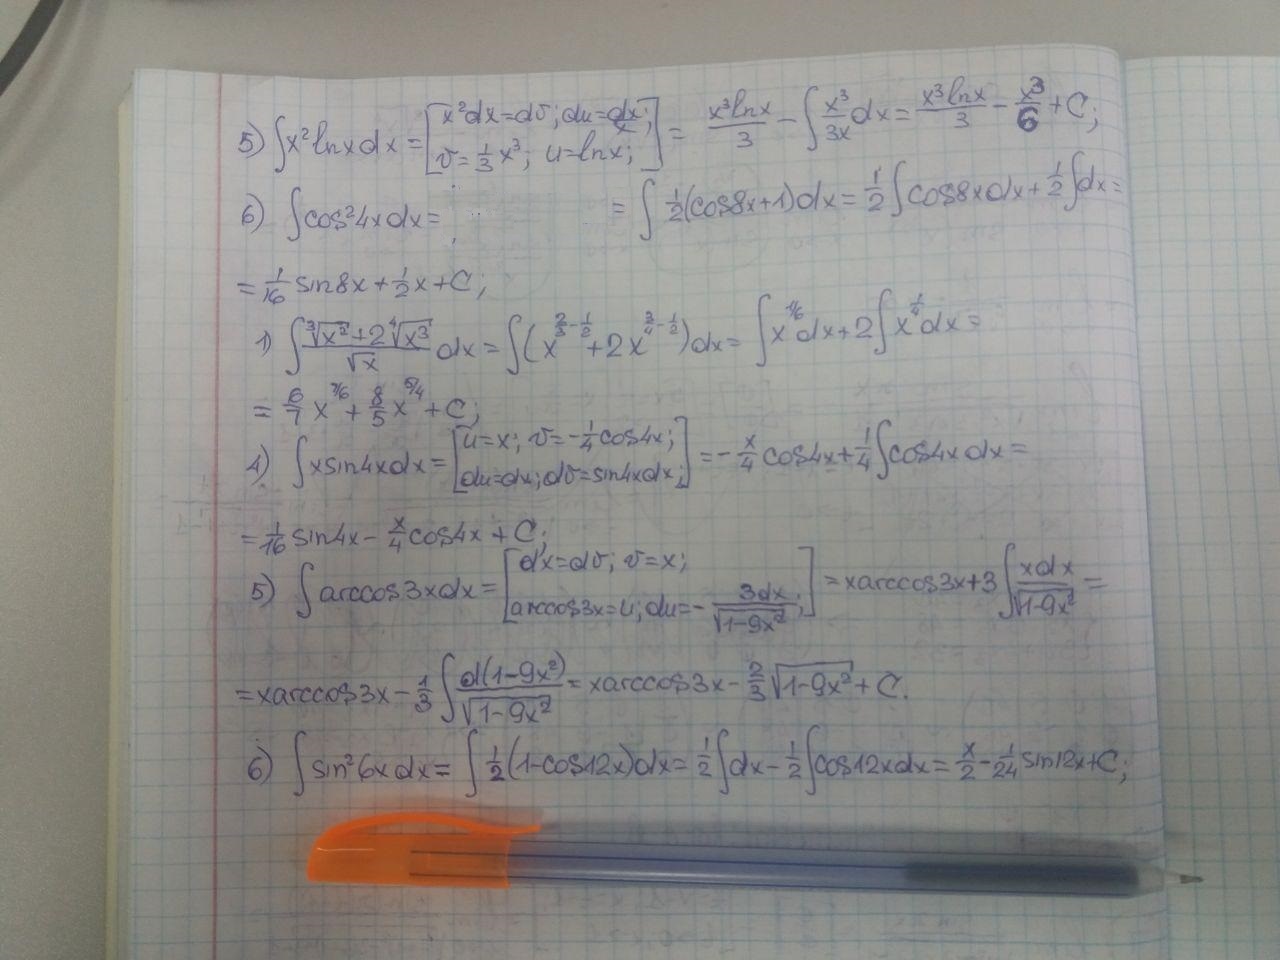 5) ∫x²lnxdx = [x²dx=dv; du=dx/x; v=1/3 x³; u=lnx;] = x³lnx/3 − ∫x³/3x dx = x³lnx/3 − x³/6 + C;
6) ∫cos²4xdx = = ∫1/2(cos8x+1)dx = 1/2∫cos8xdx + 1/2∫dx =
= 1/16 sin8x + 1/2 x + C;
1) ∫(∛x² + 2∜x³)/√x dx = ∫(x^(2/3 − 1/2) + 2x^(3/4 − 1/2))dx = ∫x^(1/6)dx + 2∫x^(1/4)dx =
= 6/7 x^(7/6) + 8/5 x^(5/4) + C;
4) ∫xsin4xdx = [u=x; v=−1/4 cos4x; du=dx; dv=sin4xdx;] = −x/4 cos4x + 1/4∫cos4xdx =
= 1/16 sin4x − x/4 cos4x + C;
5) ∫arccos3xdx = [dx=dv; v=x; arccos3x=u; du=−3dx/√(1−9x²);] = xarccos3x + 3∫xdx/√(1−9x²) =
= xarccos3x − 1/3∫d(1−9x²)/√(1−9x²) = xarccos3x − 2/3√(1−9x²) + C.
6) ∫sin²6xdx = ∫1/2(1−cos12x)dx = 1/2∫dx − 1/2∫cos12xdx = x/2 − 1/24 sin12x + C;